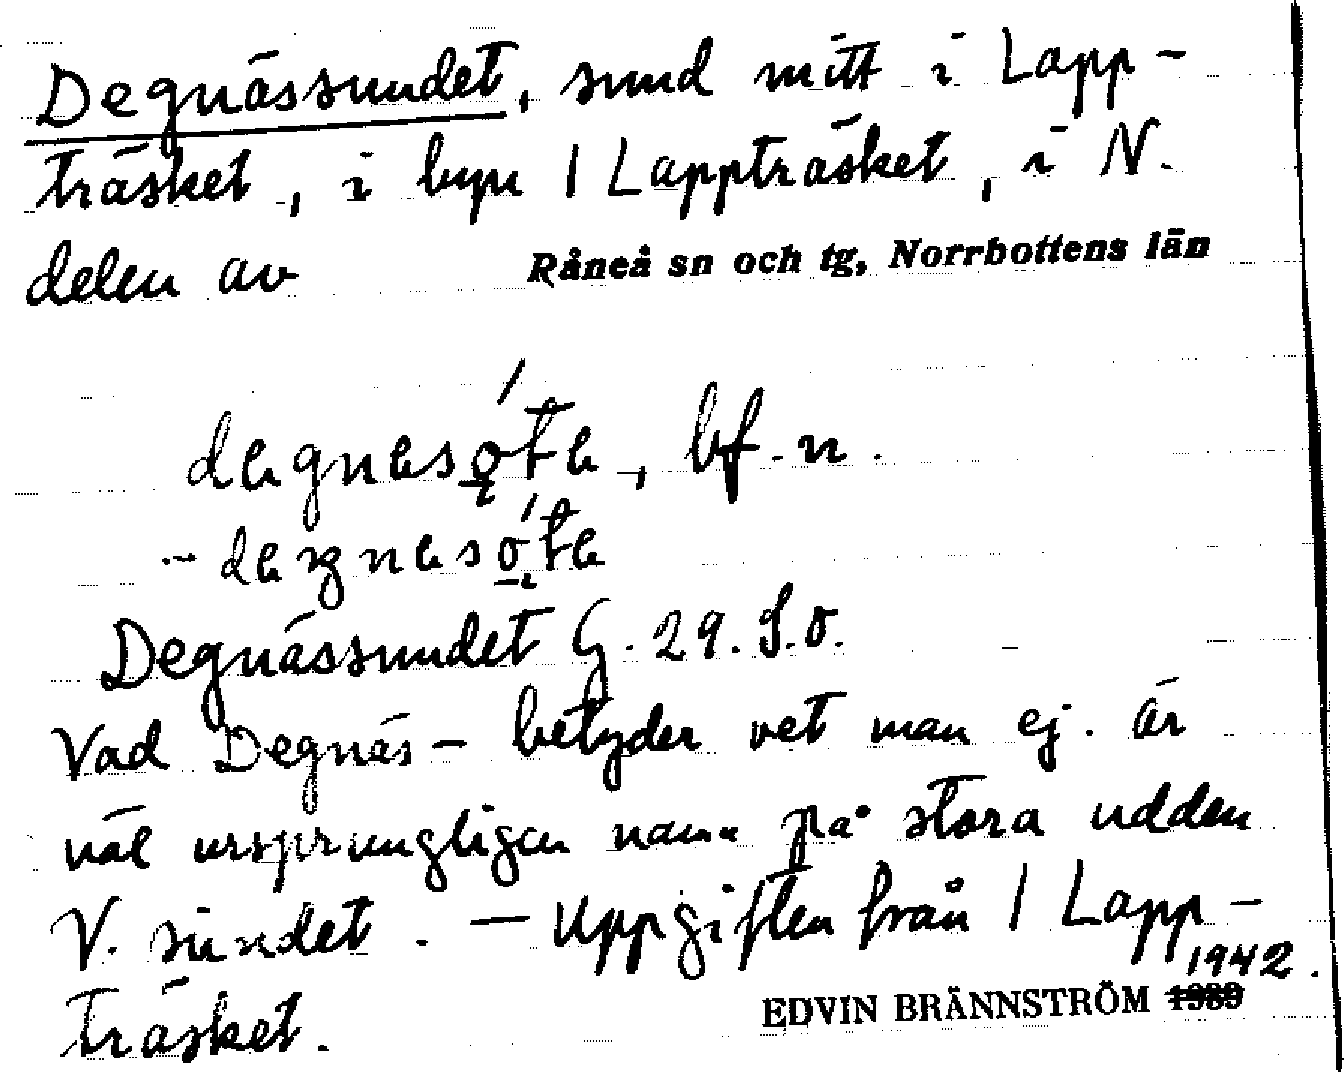 Degnässundet, sund mitt i Lapp-
träsket, i byn 1 Lappträsket, i N.
delen av Råneå sn och tg, Norrbottens län
bf. n.
Degnässundet G. 29. S.o.
Vad Degnäs- betyder vet man ej. Är
väl ursprungligen namn på stora udden
V. sundet. — Uppgiften från 1 Lapp-
träsket.
EDVIN BRÄNNSTRÖM 1942.